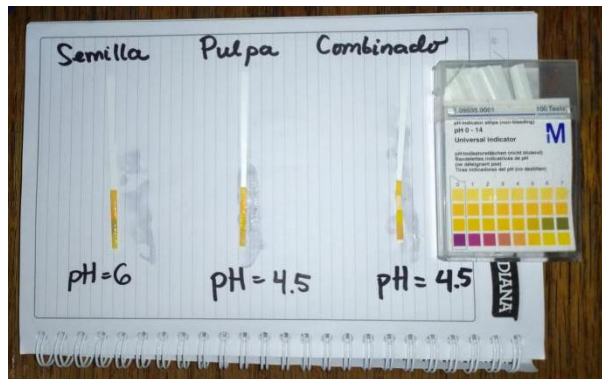 Semilla
Pulpa
Combinado
pH=6
pH=4.5
pH=4.5
1.09535.0001 100 Tests
pH-indicator strips (non-bleeding)
pH 0 - 14
Universal indicator
M
pH-Indikatorstäbchen (nicht blutend)
Tiras indicadoras del pH (no destiñen)
0 1 2 3 4 5 6 7
DIANA